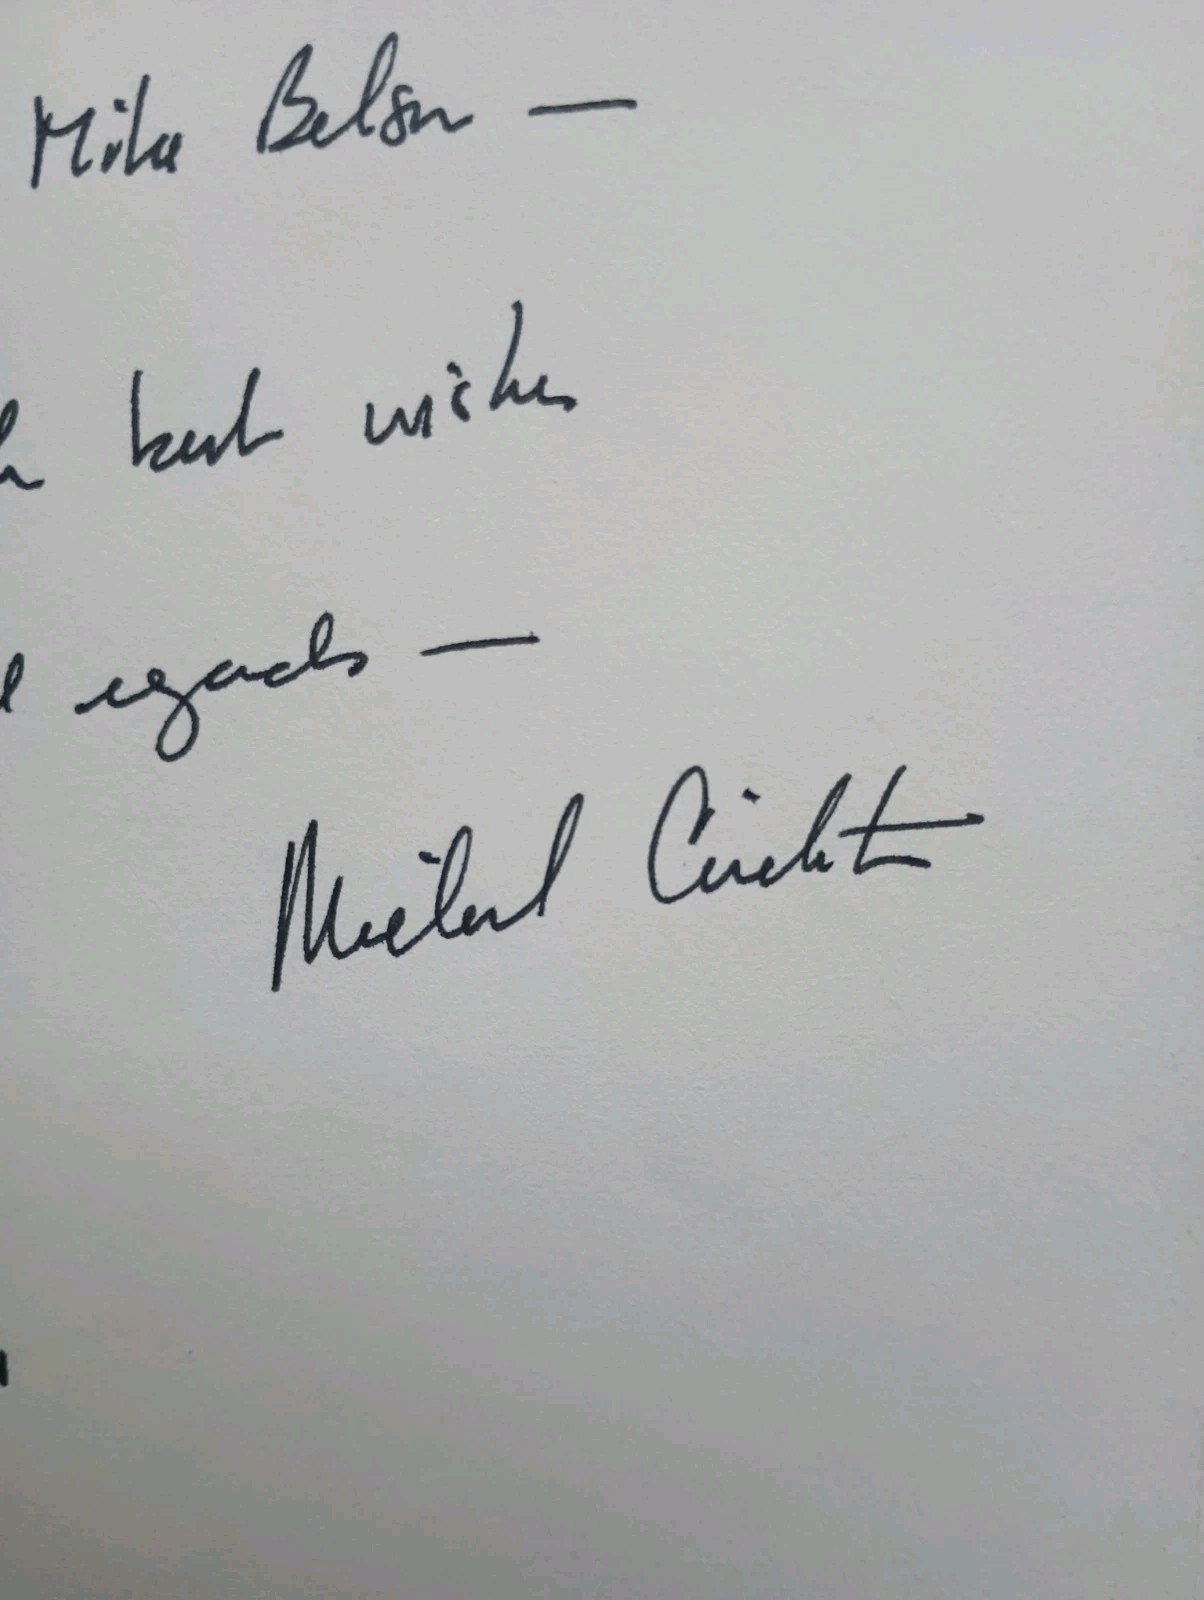 Mike Belson —
best wishes
regards —
Michael Crichton